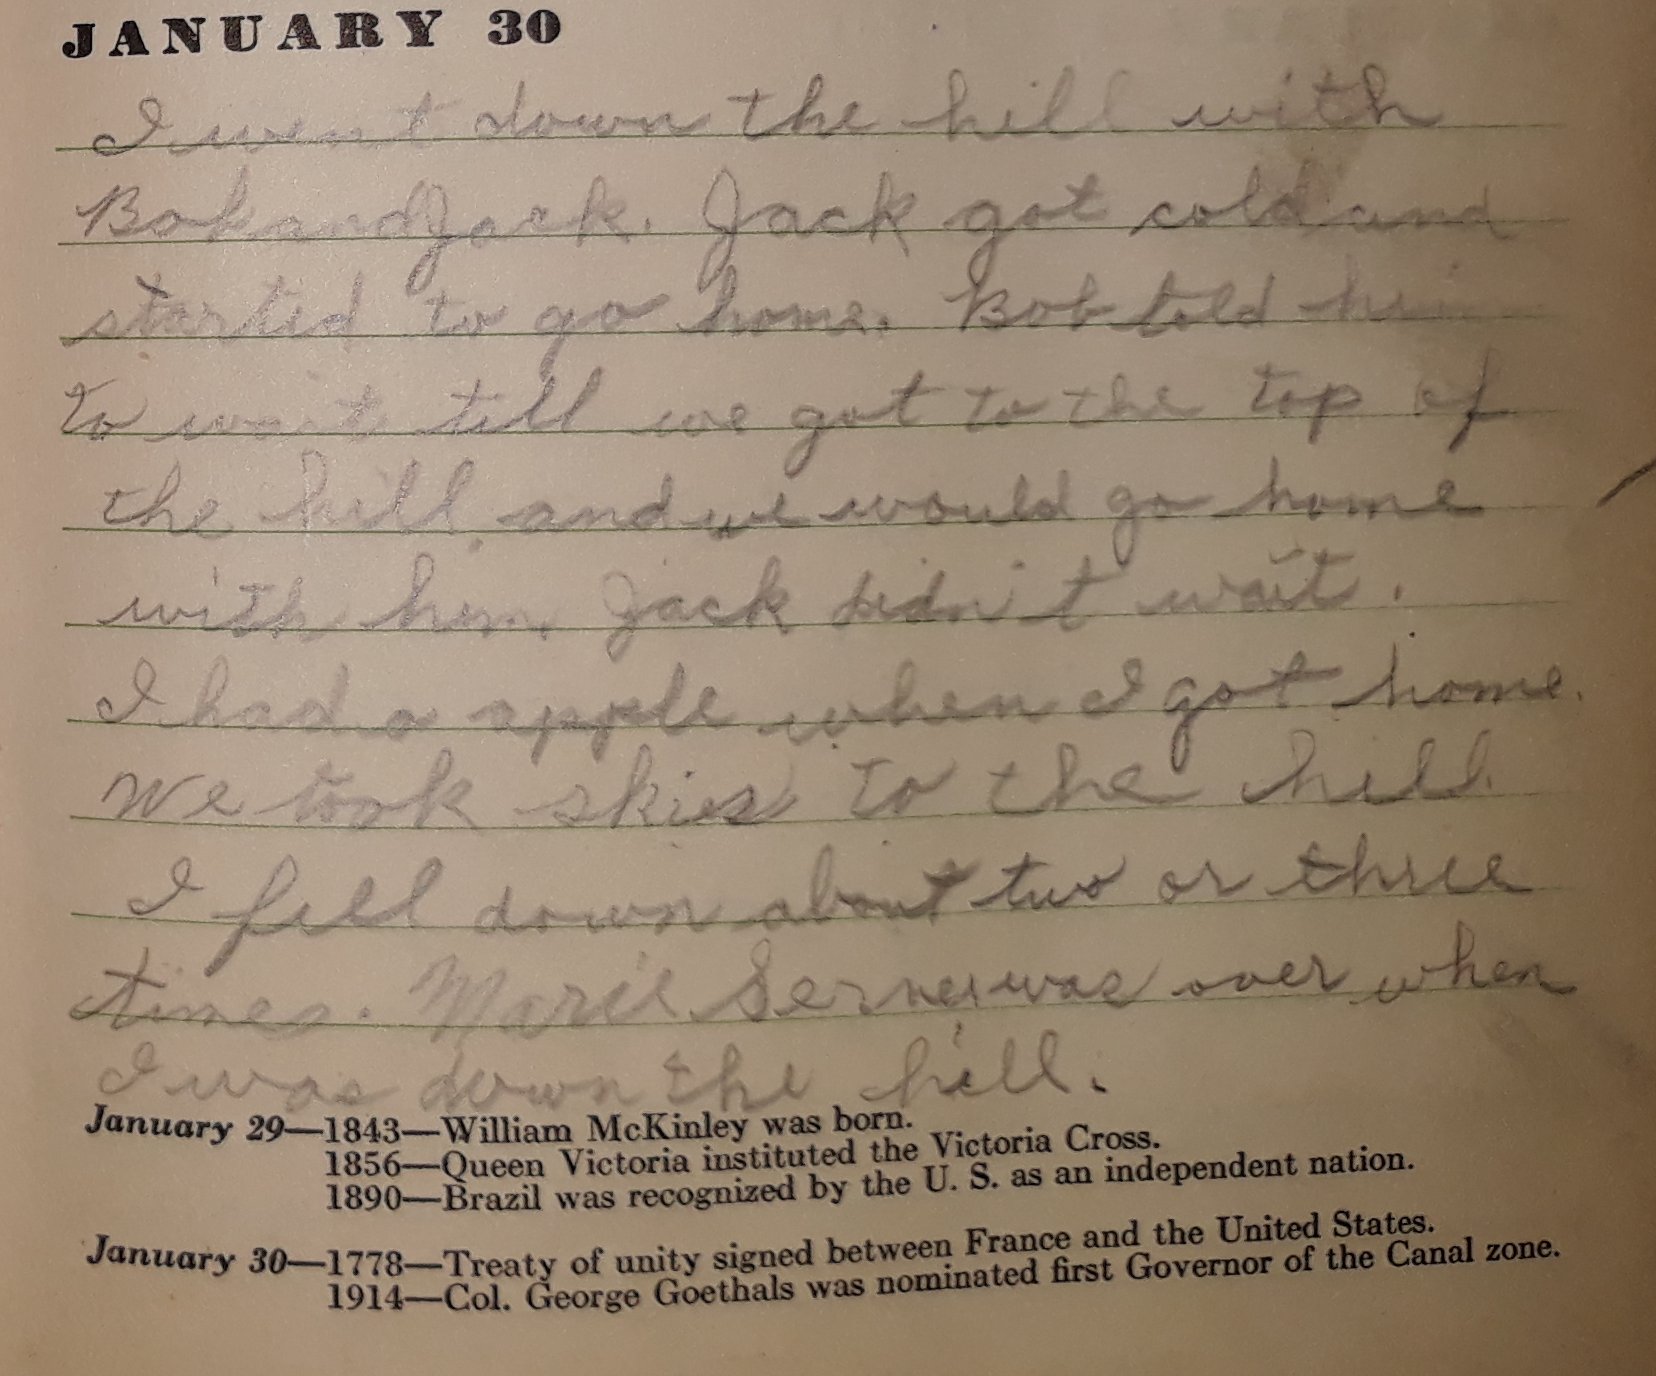 JANUARY 30
I went down the hill with
Bob and Jack. Jack got cold and
started to go home. Bob told him
to wait till we got to the top of
the hill and we would go home
with him. Jack didn't wait.
I had a apple when I got home.
We took skies to the hill.
I fell down about two or three
times. Marie was over when
I was down the hill.
January 29—1843—William McKinley was born.
1856—Queen Victoria instituted the Victoria Cross.
1890—Brazil was recognized by the U. S. as an independent nation.
January 30—1778—Treaty of unity signed between France and the United States.
1914—Col. George Goethals was nominated first Governor of the Canal zone.